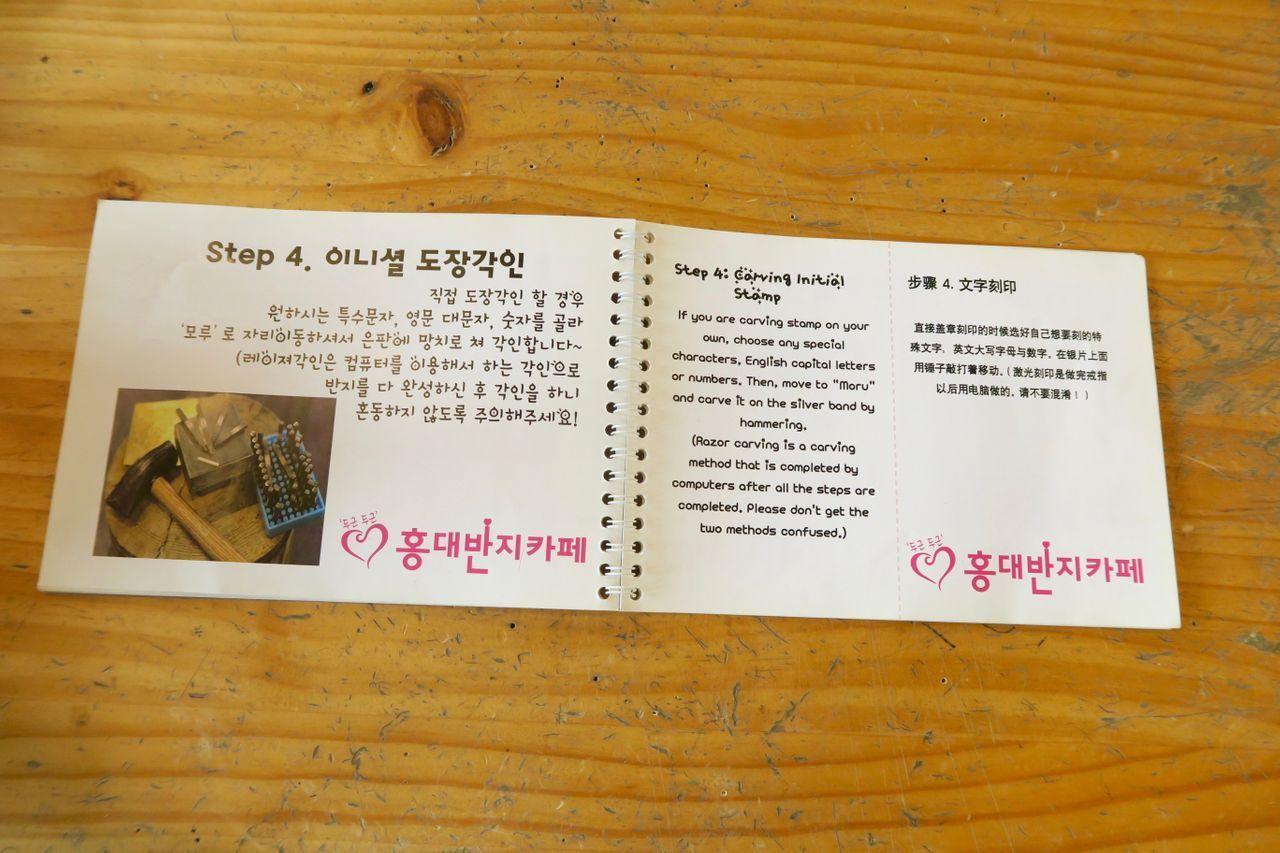 Step 4. 이니셜 도장각인
직접 도장각인 할 경우
원하시는 특수문자, 영문 대문자, 숫자를 골라
'모루' 로 자리이동하셔서 은판에 망치로 쳐 각인합니다~
(레이져각인은 컴퓨터를 이용해서 하는 각인으로
반지를 다 완성하신 후 각인을 하니
혼동하지 않도록 주의해주세요!
'두근 두근'
홍대반지카페
Step 4: Carving Initial
Stamp
If you are carving stamp on your
own, choose any special
characters, English capital letters
or numbers. Then, move to "Moru"
and carve it on the silver band by
hammering.
(Razor carving is a carving
method that is completed by
computers after all the steps are
completed. Please don't get the
two methods confused.)
步骤 4. 文字刻印
直接盖章刻印的时候选好自己想要刻的特
殊文字, 英文大写字母与数字. 在银片上面
用锤子敲打着移动. ( 激光刻印是做完戒指
以后用电脑做的. 请不要混淆！ )
'두근 두근'
홍대반지카페